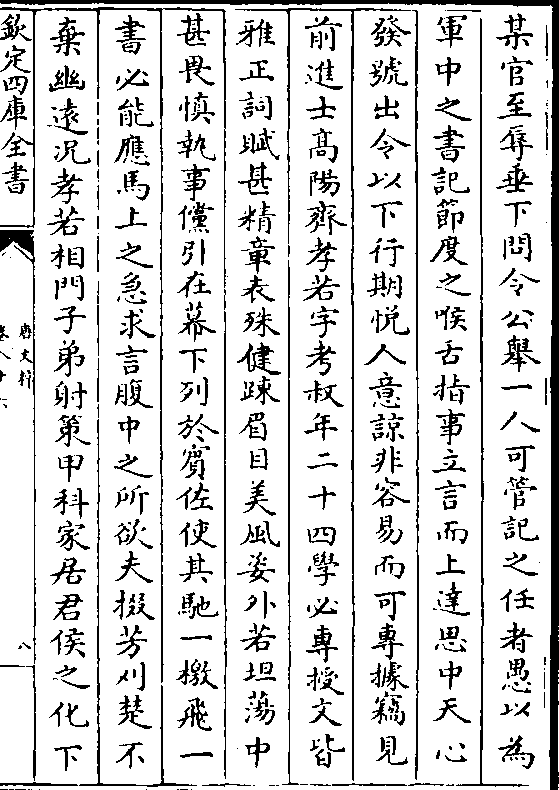 某官至辱垂下問令公舉一人可管記之任者愚以為
軍中之書記節度之喉舌指事立言而上達思中天心
發號出令以下行期悅人意諒非容易而可專據竊見
前進士髙陽齊孝若字考叔年二十四學必專授文皆
雅正詞賦甚精章表殊健踈眉目美風姿外若坦蕩中
甚畏慎執事儻引在幕下列於賓佐使其馳一檄飛一
書必能應馬上之急求言腹中之所欲夫掇芳刈楚不
棄幽遠況孝若相門子弟射策甲科家居君侯之化下
欽定四庫全書
唐文粹
卷八十六
八